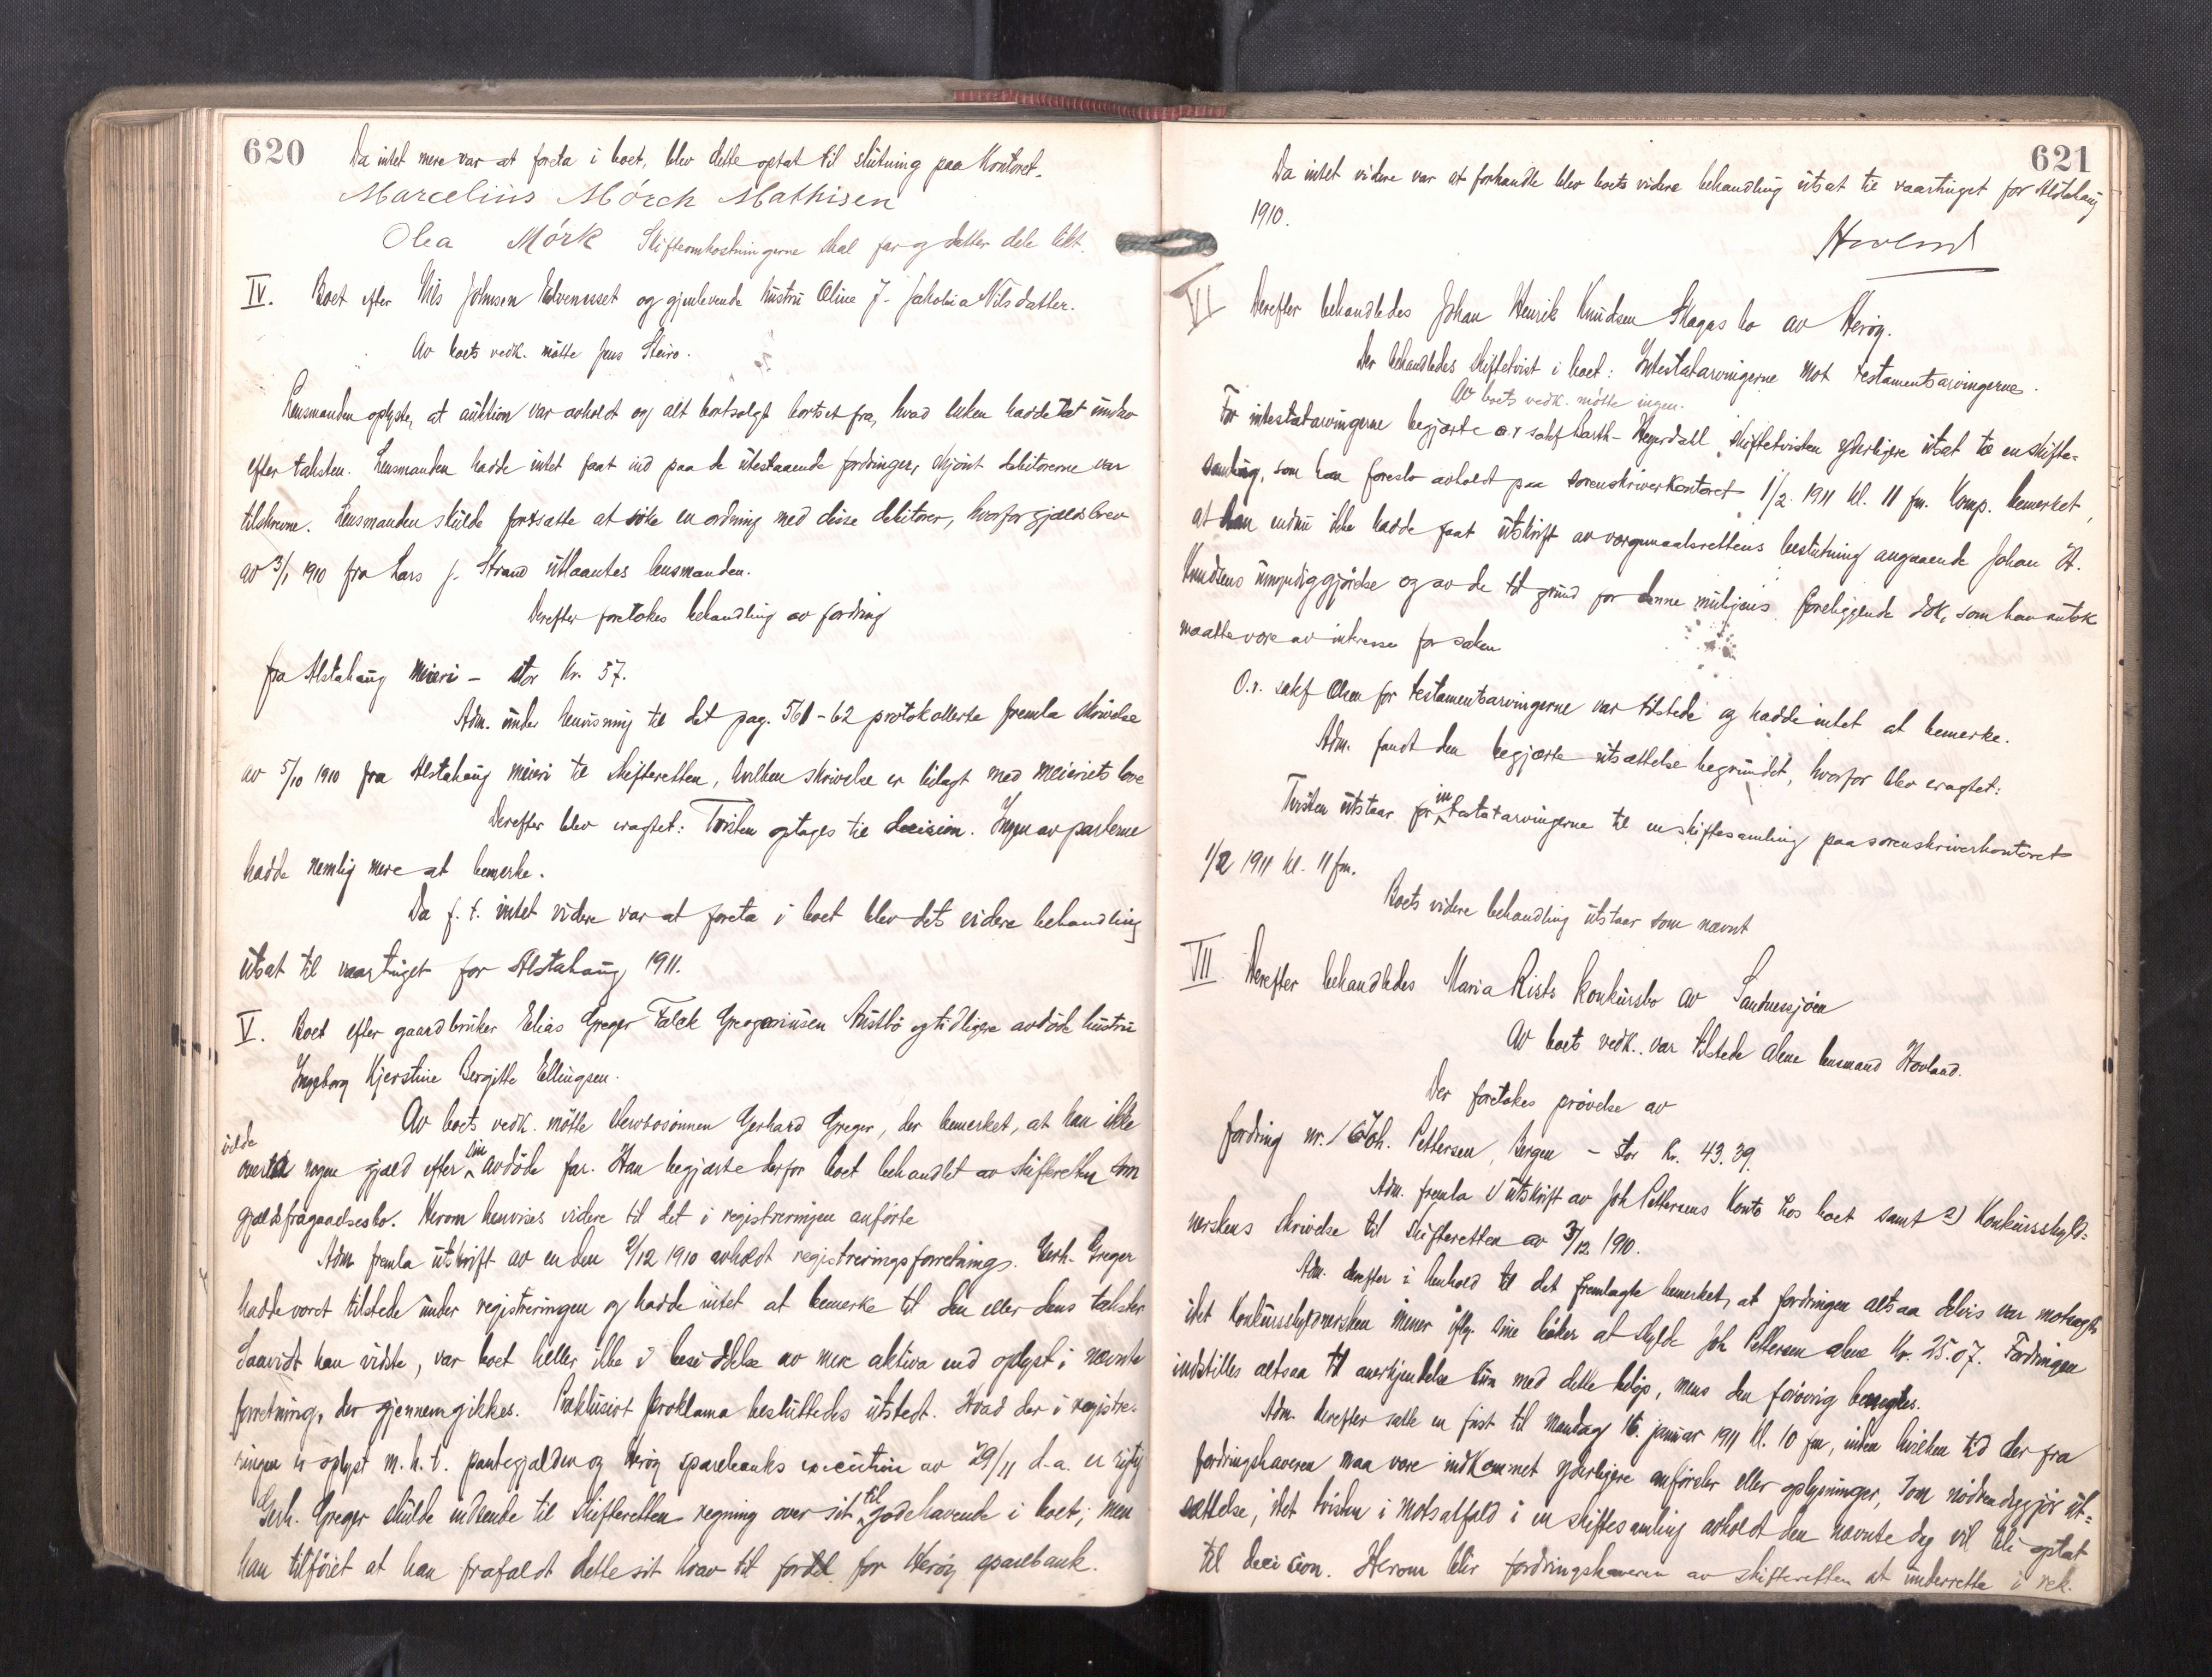 620
Da intet mere var at foreta i boet, blev dette optat til slutning paa Kontoret.
Marcelius Mörch Mathisen
Olea Mörk Skifteomkostningerne skal far og datter dele likt.
IV. Boet efter Nils Johnsen og gjenlevende hustru Oline J. Jakobia Nilsdatter.
Av boets vedk. mötte Jens Steiro.
Lensmanden oplyste, at auktion var avholdt og alt bortsolgt bortset fra, hvad enken hadde tat
efter taksten. Lensmanden hadde intet faat ind paa de utestaaende fordringer, skjönt debitorerne var
tilskrevne. Lensmanden skulde fortsætte at söke en ordning med disse debitorer, hvorfor gjældsbrev
av 3/1 1910 fra Lars J. Strand utlaantes lensmanden.
Derefter foretokes behandling av fordring
fra Alstahaug meieri – stor Kr. 57.
Adm. under henvisning til det pag. 561-62 protokollerte fremla skrivelse
av 5/10 1910 fra Alstahaug meieri til Skifteretten, hvilken skrivelse er bilagt med meieriets love
Derefter blev eragtet: Tvisten optages til decision. Ingen av parterne
hadde nemlig mere at bemerke.
Da f. t. intet videre var at foreta i boet blev dets videre behandling
utsat til vaartinget for Alstahaug 1911.
V. Boet efter gaardbruker Elias Greger Falck Gregoriusen Austbö og tidligere avdöde hustru
Ingeborg Kjerstine Bergitte Ellingsen.
Av boets vedk. mötte Gerhard Greger, der bemerket, at han ikke
vilde
overta nogen gjæld efter sin avdöde far. Han begjærte derfor boet behandlet av skifteretten som
gjældsfragaaelsesbo. Herom henvises videre til det i registreringen anförte
Adm. fremla utskrift av en den 2/12 1910 avholdt registreringsforretnings. Gerh. Greger
hadde været tilstede under registreringen og hadde intet at bemerke til den eller dens takster
Saavidt han vidste, var boet heller ikke i besiddelse av mere aktiva end oplyst i nævnte
forretning, der gjennemgikkes. Præklusivt proklama besluttedes utstedt. Hvad der i registre-
ringen er oplyst m. h. t. pantegjælden og Heröy sparebanks execution av 29/11 d.a. er rigtig
Gerh. Greger skulde indsende til skifteretten regning over sit til godehavende i boet; men
han tilföiet at han frafaldt dette sit krav til fordel for Heröy sparebank.
621
Da intet videre var at forhandle blev boets videre behandling utsat til vaartinget for Alstahaug
1910.
Hovland
VI Derefter behandledes Johan Henrik Knudsen Skagas bo av Heröy.
Der behandledes skiftetvist i boet: Intestatarvingerne mot testamentsarvingerne.
Av boets vedk. mötte ingen.
For intestatarvingerne begjærte o.r sakf Barth-Heyerdahl skiftetvisten yderligere utsat til en skifte-
samling, som han foreslo avholdt paa sorenskriverkontoret 1/2 1911 kl. 11 fm. Komp. bemerket,
at han endnu ikke hadde faat utskrift av vergemaalsrettens beslutning angaaende Johan H.
Knudsens umyndiggjörelse og av de til grund for denne foreliggende dok, som han antok
maatte være av interesse for saken
O.r. sakf Olsen for testamentsarvingerne var tilstede og hadde intet at bemerke.
Adm. fandt den begjærte utsættelse begrundet, hvorfor blev eragtet:
Tvisten utstaar for intestatarvingerne til en skiftesamling paa sorenskriverkontoret
1/2 1911 kl. 11 fm.
Boets videre behandling utstaar som nævnt
VII. Derefter behandledes Maria Rists konkursbo av Sandnessjöen
Av boets vedk. var tilstede alene lensmand Hovland.
Der foretokes prövelse av
fordring nr. 16 Joh. Pettersen, Bergen – stor Kr. 43.39.
Adm. fremla 1) utskrift av Joh Pettersens Konto hos boet samt 2) Konkursskyld-
nerskens skrivelse til skifteretten av 3/12 1910.
Adm. derefter i henhold til det fremlagte bemerket, at fordringen altsaa delvis var motsagt
idet konkursskyldnersken mener iflg. sine böker at skylde Joh Pettersen alene Kr. 25.07. Fordringen
indstilles altsaa til anerkjendelse kun med dette belöp, mens den forövrig benegtes.
Adm. derefter satte en frist til mandag 16. januar 1911 kl. 10 fm, inden hvilken tid der fra
fordringshaveren maa være indkommet yderligere anförsler eller oplysninger, som nödvendiggjör ut-
sættelse, idet tvisten i motsatfald i en skiftesamling avholdt den nævnte dag vil bli optat
til decision. Herom blir fordringshaveren av skifteretten at underrette i rek.